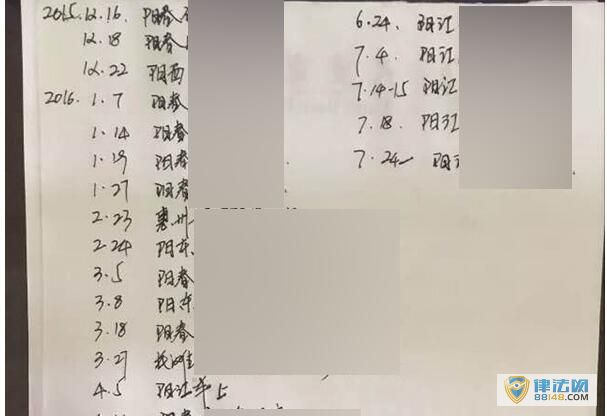 2015.12.16. 阳春
12.18 阳春
12.22 阳西
2016. 1.7 阳春
1.14 阳春
1.19 阳春
1.27 阳春
2.23 惠州
2.24 阳东
3.5 阳春
3.8 阳东
3.18 阳春
3.27
4.5 阳江
6.24. 阳江
7.4. 阳江
7.14-15 阳江
7.18. 阳江
7.24 阳江
律法网
88148.com